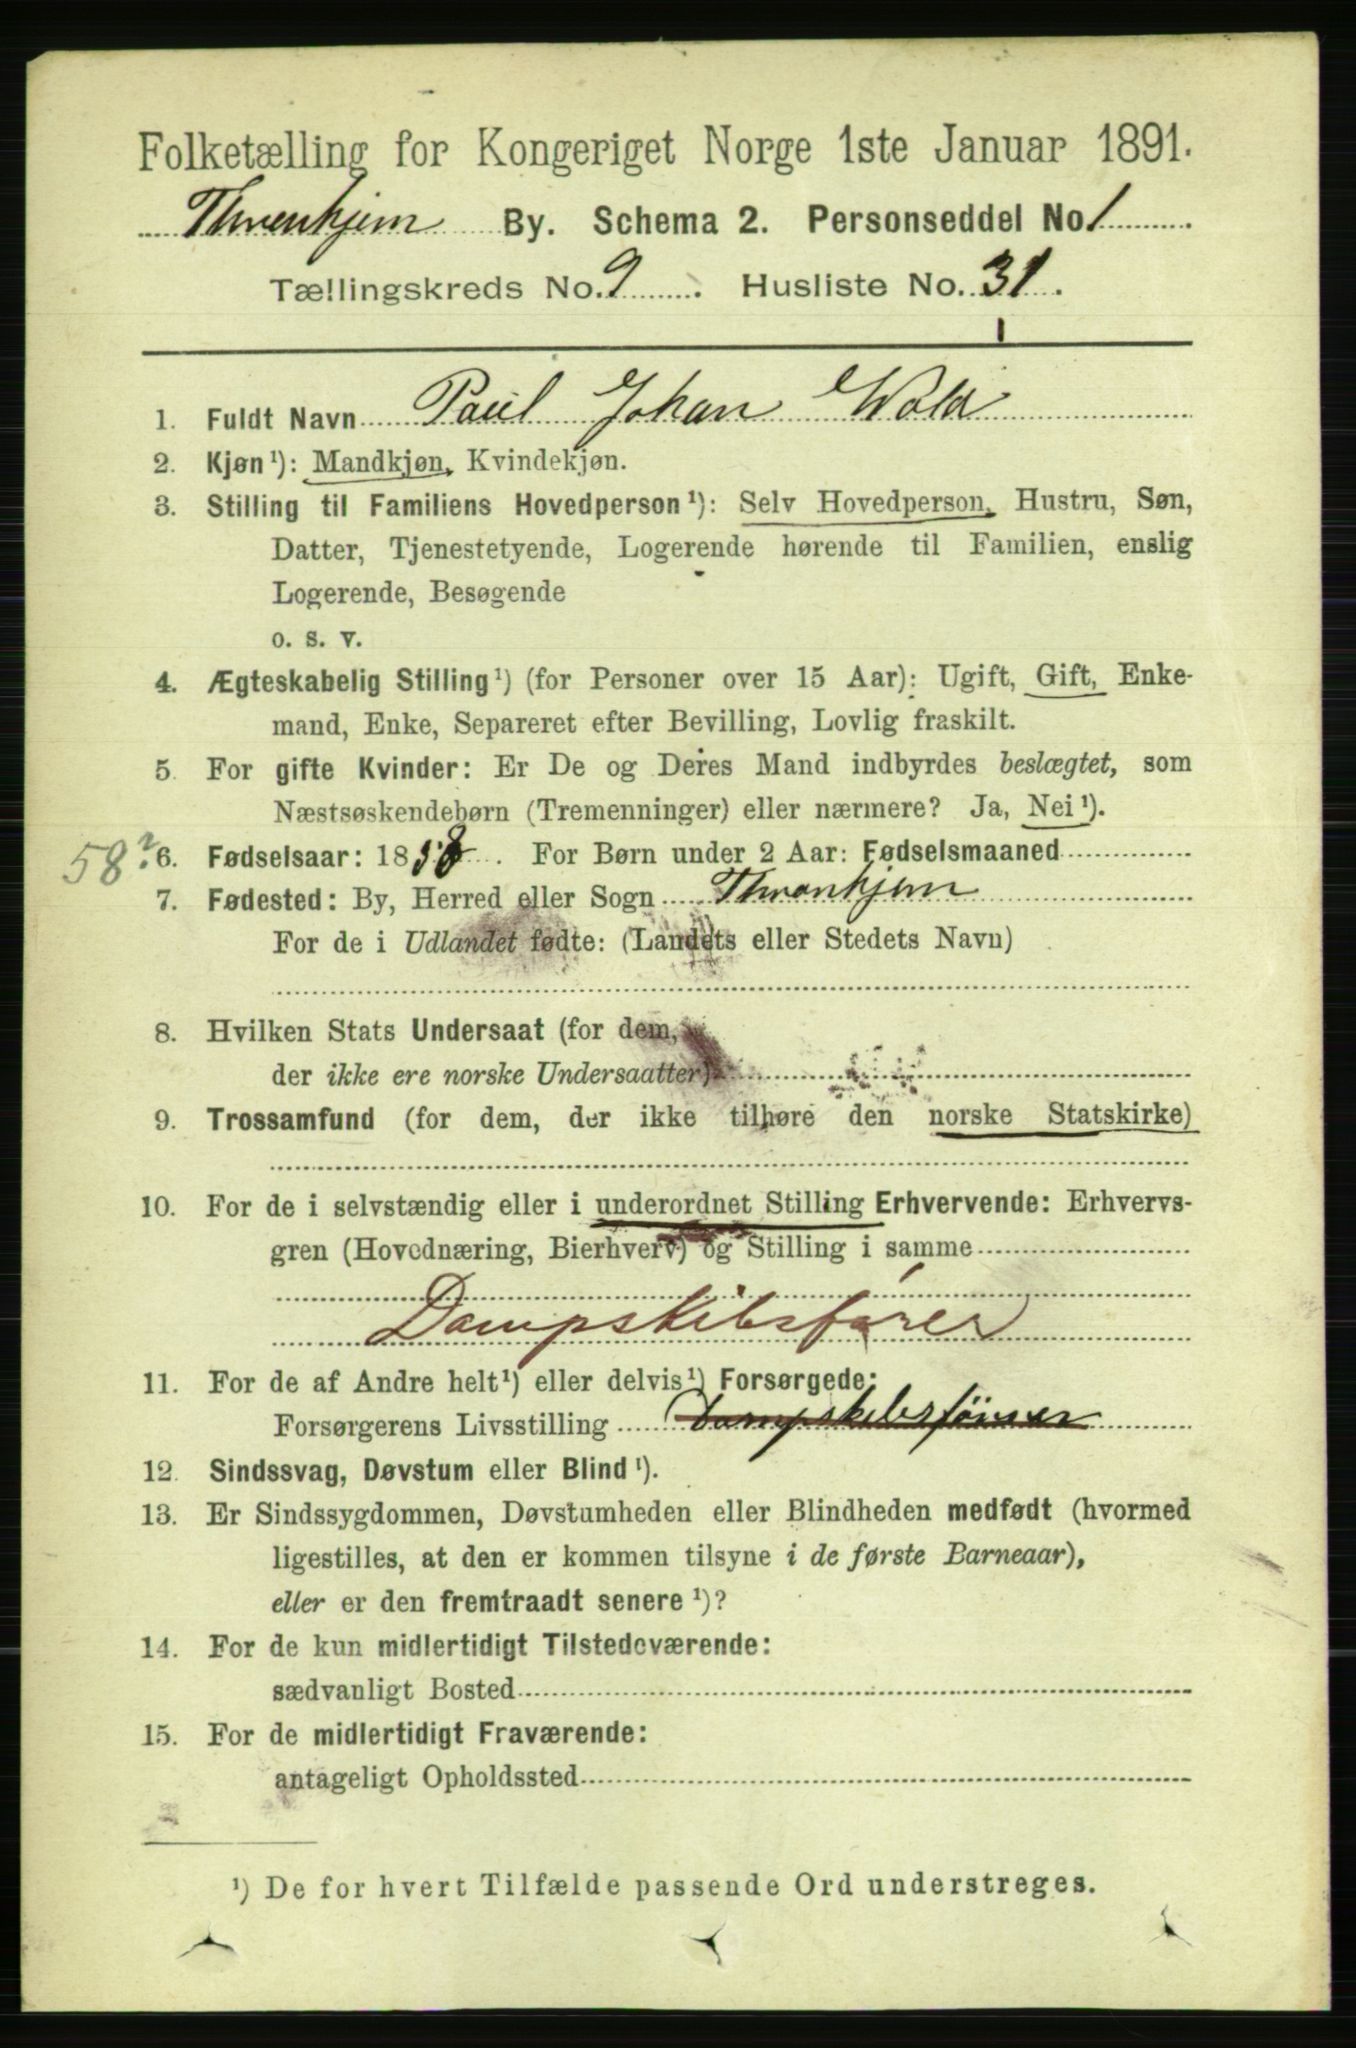 Folketælling for Kongeriget Norge 1ste Januar 1891.
Thronhjem By. Schema 2. Personseddel No 1
Tællingskreds No. 9. Husliste No. 31.
1. Fuldt Navn Paul Johan Wold
2. Kjøn ¹): Mandkjøn, Kvindekjøn.
3. Stilling til Familiens Hovedperson ¹): Selv Hovedperson, Hustru, Søn,
Datter, Tjenestetyende, Logerende hørende til Familien, enslig
Logerende, Besøgende
o. s. v.
4. Ægteskabelig Stilling ¹) (for Personer over 15 Aar): Ugift, Gift, Enke-
mand, Enke, Separeret efter Bevilling, Lovlig fraskilt.
5. For gifte Kvinder: Er De og Deres Mand indbyrdes beslægtet, som
Næstsøskendebørn (Tremenninger) eller nærmere? Ja, Nei ¹).
58?
6. Fødselsaar: 1858. For Børn under 2 Aar: Fødselsmaaned
7. Fødested: By, Herred eller Sogn Thronhjem
For de i Udlandet fødte: (Landets eller Stedets Navn)
8. Hvilken Stats Undersaat (for dem,
der ikke ere norske Undersaatter)
9. Trossamfund (for dem, der ikke tilhøre den norske Statskirke)
10. For de i selvstændig eller i underordnet Stilling Erhvervende: Erhvervs-
gren (Hovednæring, Bierhverv) og Stilling i samme
Dampskibsfører
11. For de af Andre helt ¹) eller delvis ¹) Forsørgede:
Forsørgerens Livsstilling
12. Sindssvag, Døvstum eller Blind ¹).
13. Er Sindssygdommen, Døvstumheden eller Blindheden medfødt (hvormed
ligestilles, at den er kommen tilsyne i de første Barneaar),
eller er den fremtraadt senere ¹)?
14. For de kun midlertidigt Tilstedeværende:
sædvanligt Bosted
15. For de midlertidigt Fraværende:
antageligt Opholdssted
¹) De for hvert Tilfælde passende Ord understreges.